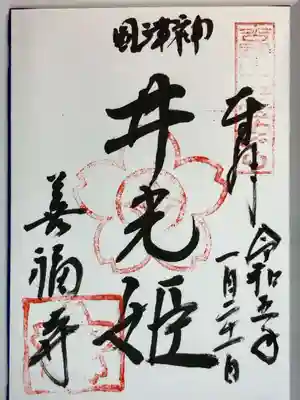 奉拝
令和五年
一月二十一日
国津神
井光姫
善福寺